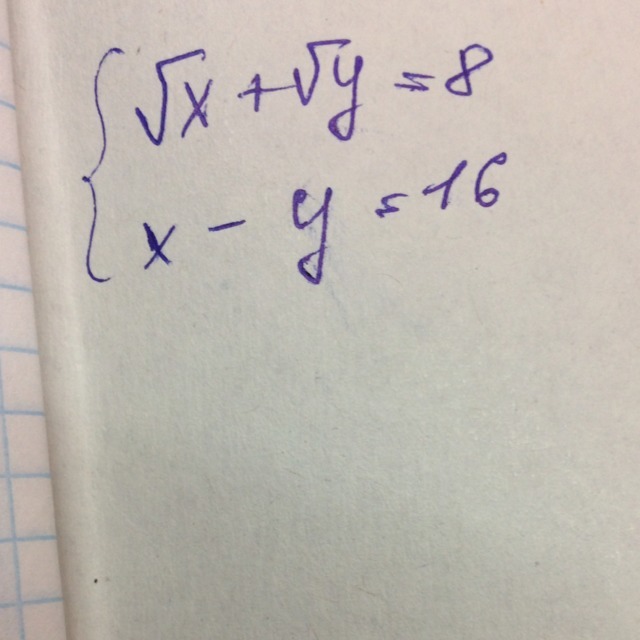 √x + √y = 8
x - y = 16